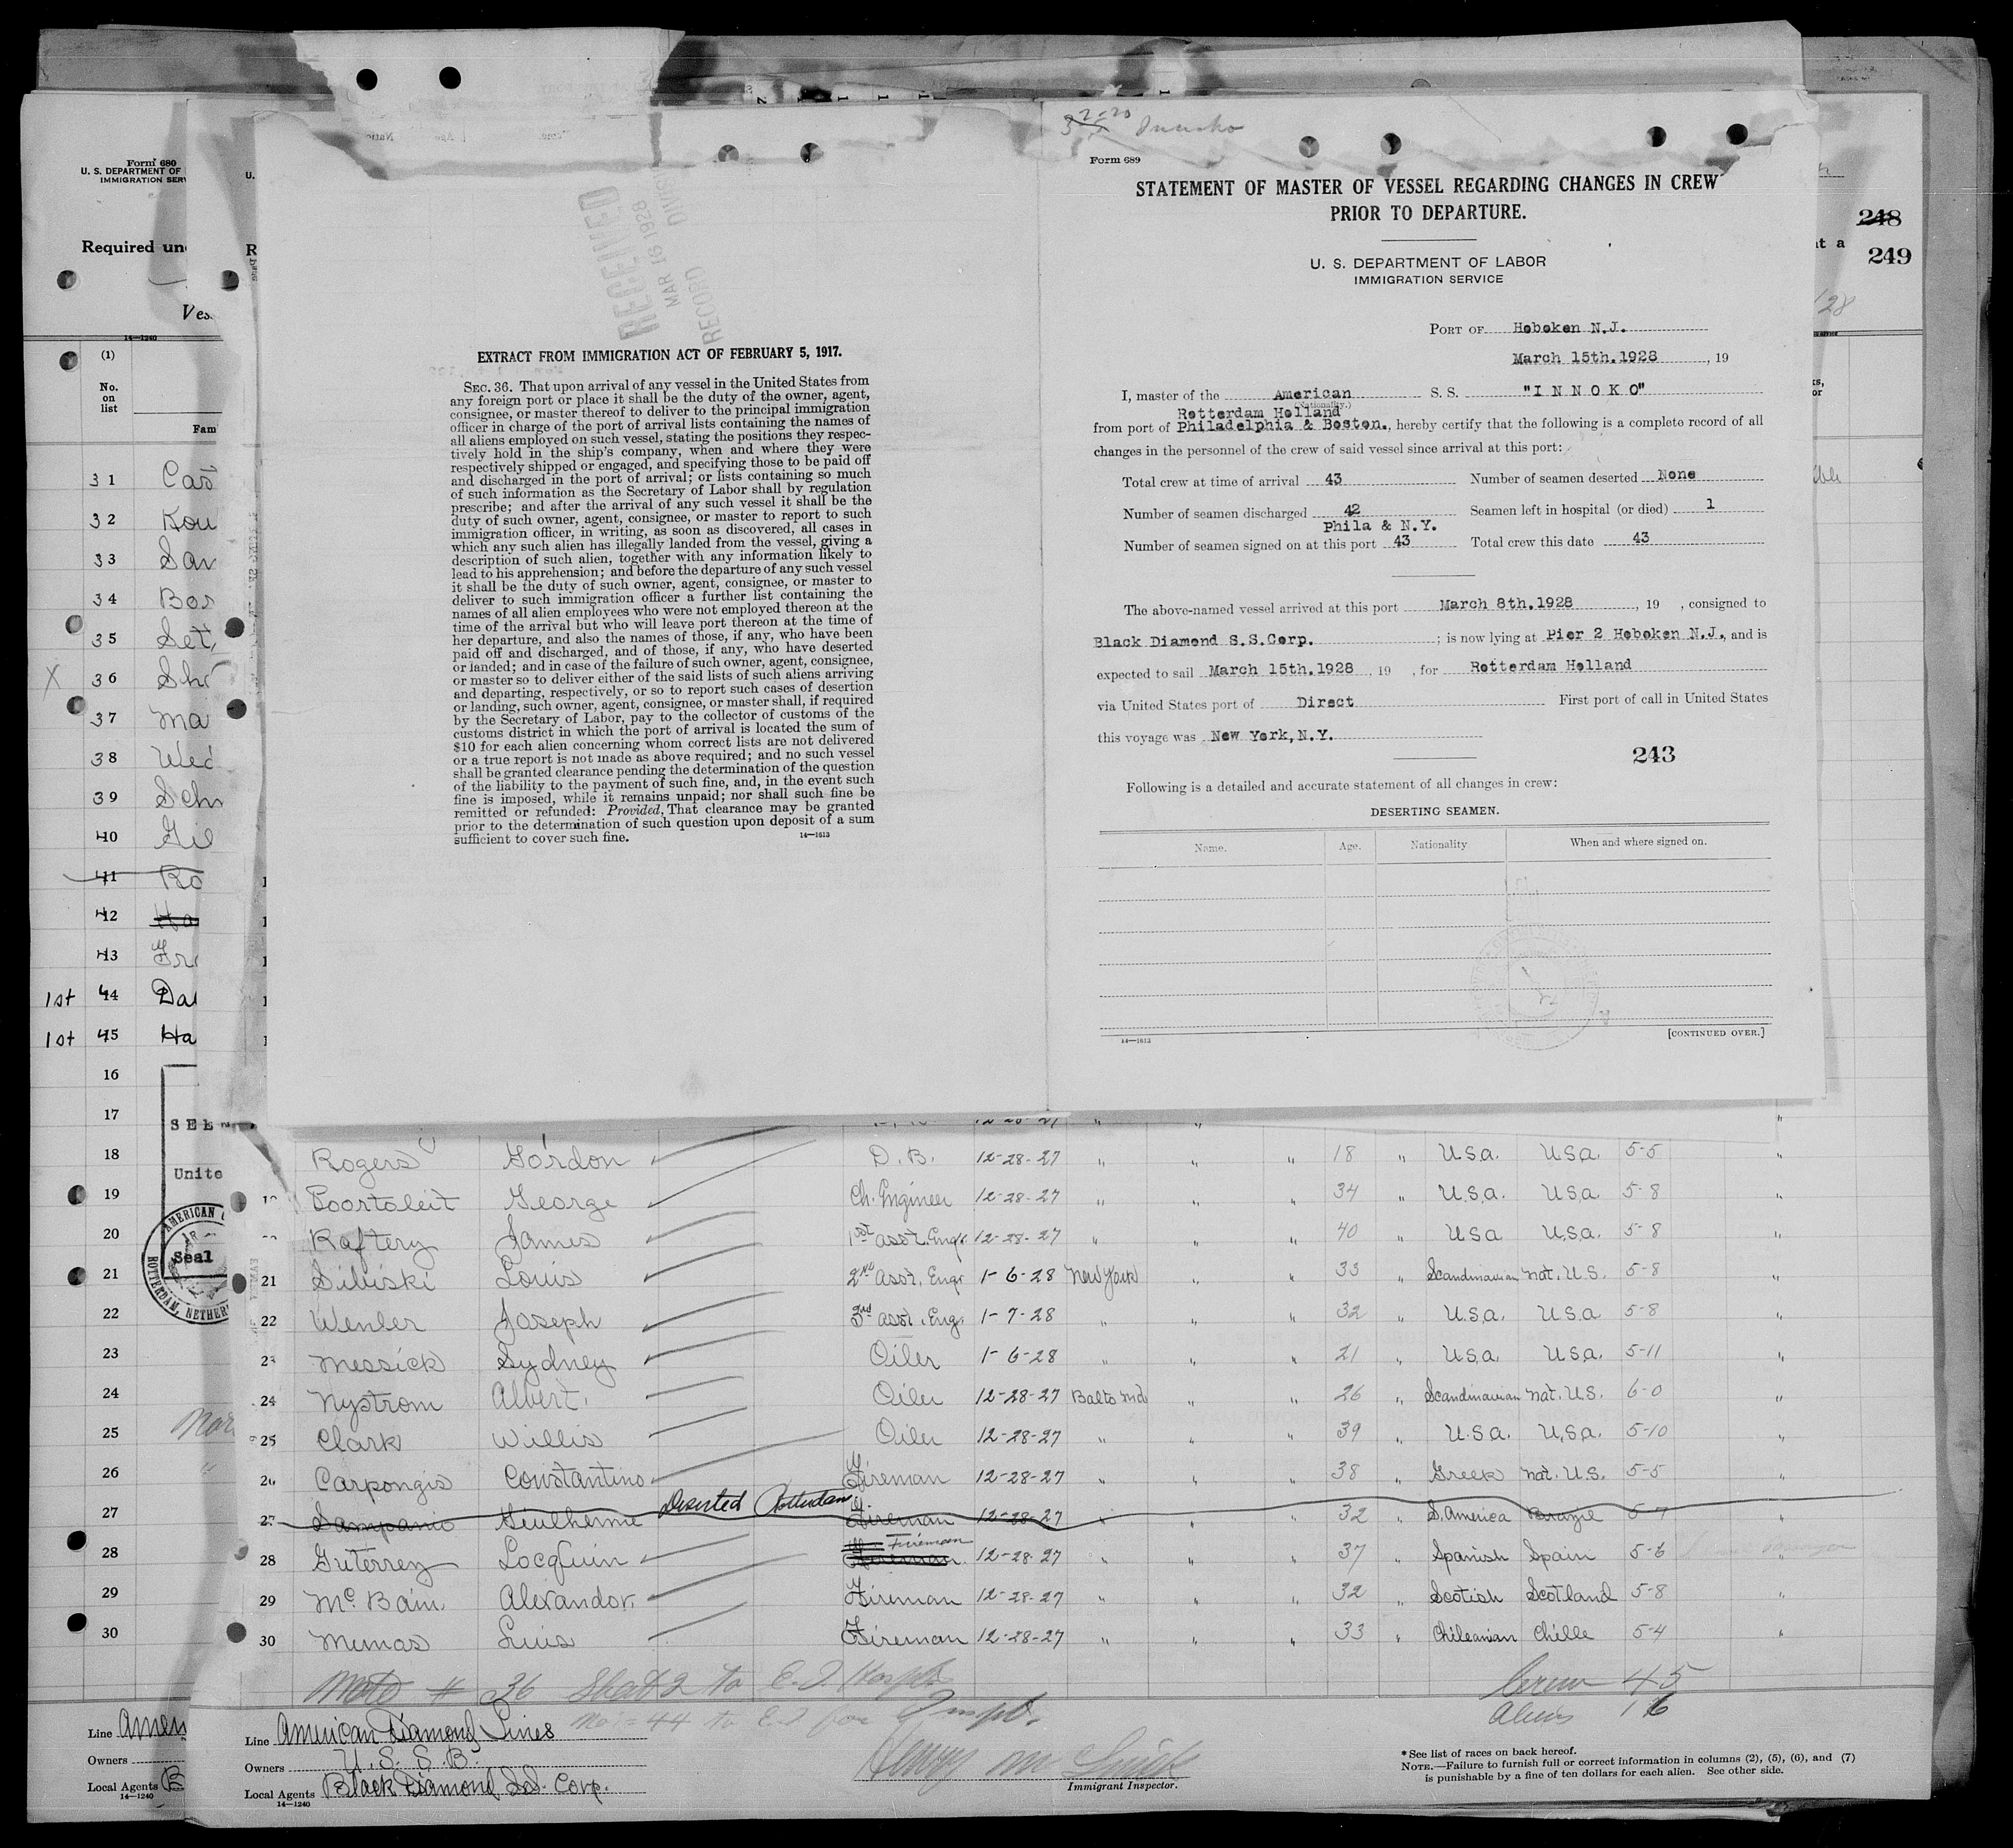 Form 680
U. S. DEPARTMENT OF
IMMIGRATION SERV
Required un
Ves
14—1240
(1)
No.
on
list
Fam
31 Cas
32 Kou
33 San
34 Bor
35 Set
X 36 Shr
37 Ma
38 Wed
39 Schr
40 Gil
41 Ro
42 Ha
43 Fre
1st 44 Dau
1st 45 Ha
16
17
18
19
20
21
22
23
24
25
26
27
28
29
30
Unite
AMERICAN
Seal
ROTTERDAM, NETHER
Line Amer
Owners
Local Agents B
14—1240
RECEIVED
MAR 16 1928
RECORD DIVIS
EXTRACT FROM IMMIGRATION ACT OF FEBRUARY 5, 1917.
SEC. 36. That upon arrival of any vessel in the United States from
any foreign port or place it shall be the duty of the owner, agent,
consignee, or master thereof to deliver to the principal immigration
officer in charge of the port of arrival lists containing the names of
all aliens employed on such vessel, stating the positions they respec-
tively hold in the ship's company, when and where they were
respectively shipped or engaged, and specifying those to be paid off
and discharged in the port of arrival; or lists containing so much
of such information as the Secretary of Labor shall by regulation
prescribe; and after the arrival of any such vessel it shall be the
duty of such owner, agent, consignee, or master to report to such
immigration officer, in writing, as soon as discovered, all cases in
which any such alien has illegally landed from the vessel, giving a
description of such alien, together with any information likely to
lead to his apprehension; and before the departure of any such vessel
it shall be the duty of such owner, agent, consignee, or master to
deliver to such immigration officer a further list containing the
names of all alien employees who were not employed thereon at the
time of the arrival but who will leave port thereon at the time of
her departure, and also the names of those, if any, who have been
paid off and discharged, and of those, if any, who have deserted
or landed; and in case of the failure of such owner, agent, consignee,
or master so to deliver either of the said lists of such aliens arriving
and departing, respectively, or so to report such cases of desertion
or landing, such owner, agent, consignee, or master shall, if required
by the Secretary of Labor, pay to the collector of customs of the
customs district in which the port of arrival is located the sum of
$10 for each alien concerning whom correct lists are not delivered
or a true report is not made as above required; and no such vessel
shall be granted clearance pending the determination of the question
of the liability to the payment of such fine, and, in the event such
fine is imposed, while it remains unpaid; nor shall such fine be
remitted or refunded: Provided, That clearance may be granted
prior to the determination of such question upon deposit of a sum
sufficient to cover such fine. 14—1613
Form 689
STATEMENT OF MASTER OF VESSEL REGARDING CHANGES IN CREW
PRIOR TO DEPARTURE.
U. S. DEPARTMENT OF LABOR
IMMIGRATION SERVICE
PORT OF Hoboken N.J.
March 15th.1928 , 19
I, master of the American S. S. "I N N O K O"
(Nationality.)
Rotterdam Holland
from port of Philadelphia & Boston., hereby certify that the following is a complete record of all
changes in the personnel of the crew of said vessel since arrival at this port:
Total crew at time of arrival 43 Number of seamen deserted None
Number of seamen discharged 42 Seamen left in hospital (or died) 1
Phila & N.Y.
Number of seamen signed on at this port 43 Total crew this date 43
The above-named vessel arrived at this port March 8th.1928 , 19 , consigned to
Black Diamond S.S.Corp. ; is now lying at Pier 2 Hoboken N.J., and is
expected to sail March 15th.1928 , 19 , for Rotterdam Holland
via United States port of Direct First port of call in United States
this voyage was New York,N.Y.
243
Following is a detailed and accurate statement of all changes in crew:
DESERTING SEAMEN.
Name. Age. Nationality When and where signed on.
14—1613 [CONTINUED OVER.]
248
at a 249
Rogers Gordon D. B. 12-28-27 " " " 18 " U.S.a. U.S.a. 5-5 "
Poortaleit George Ch. Engineer 12-28-27 " " " 34 " U.S.a. U.S.a 5-8 "
Raftery James 1st asst. Engr 12-28-27 " " " 40 " U S a U.S.a. 5-8 "
21 Sibiski Louis 2nd asst. Engr 1-6-28 New York " " 33 " Scandinavian Nat. U.S. 5-8 "
22 Wenler Joseph 3rd asst. Eng. 1-7-28 " " " 32 " U.S.a. U.S.a 5-8 "
23 Messick Sydney Oiler 1-6-28 " " " 21 " U.S.a. U.S.a. 5-11 "
24 Nystrom Albert. Oiler 12-28-27 Balto Md " " 26 " Scandinavian Nat. U.S. 6-0 "
25 Clark Willis Oiler 12-28-27 " " " 39 " U.S.a. U.S.a. 5-10 "
26 Carpongis Constantino Fireman 12-28-27 " " " 38 " Greek Nat. U.S. 5-5 "
Deserted Rotterdam
27 Sampanio Giulherme Fireman 12-28-27 " " " 32 " S. America Brazil 5-7 "
28 Guterrey Locquin Fireman 12-28-27 " " " 37 " Spanish Spain 5-6 "
29 Mc Bain. Alexandor. Fireman 12-28-27 " " " 32 " Scotish Scotland 5-8 "
30 Mumas Luis Fireman 12-28-27 " " " 33 " Chileanian Chille 5-4 "
Note # 36 Sheet 2 to E. I. Hospt. Crew 45
No = 44 to E.I for Aliens 16
Line American Diamond Lines
Owners U. S. S. B.
Local Agents Black Diamond S.S. Corp.
14—1240
Immigrant Inspector.
* See list of races on back hereof.
NOTE.—Failure to furnish full or correct information in columns (2), (5), (6), and (7)
is punishable by a fine of ten dollars for each alien. See other side.